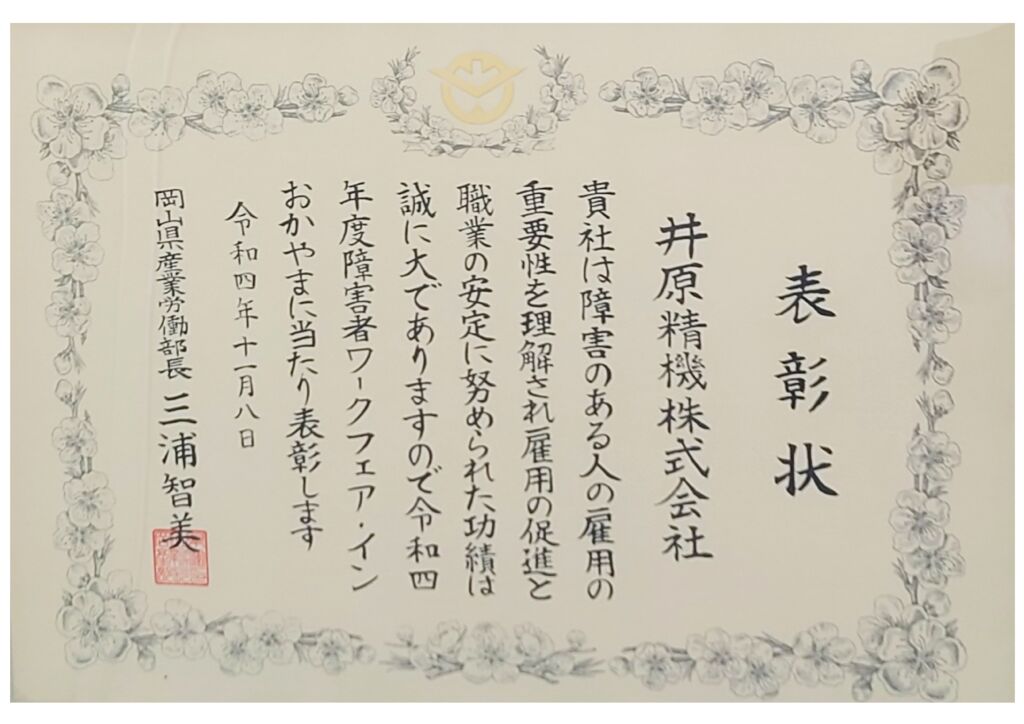 表彰状
井原精機株式会社
貴社は障害のある人の雇用の
重要性を理解され雇用の促進と
職業の安定に努められた功績は
誠に大でありますので令和四
年度障害者ワークフェア・イン
おかやまに当たり表彰します
令和四年十一月八日
岡山県産業労働部長 三浦智美